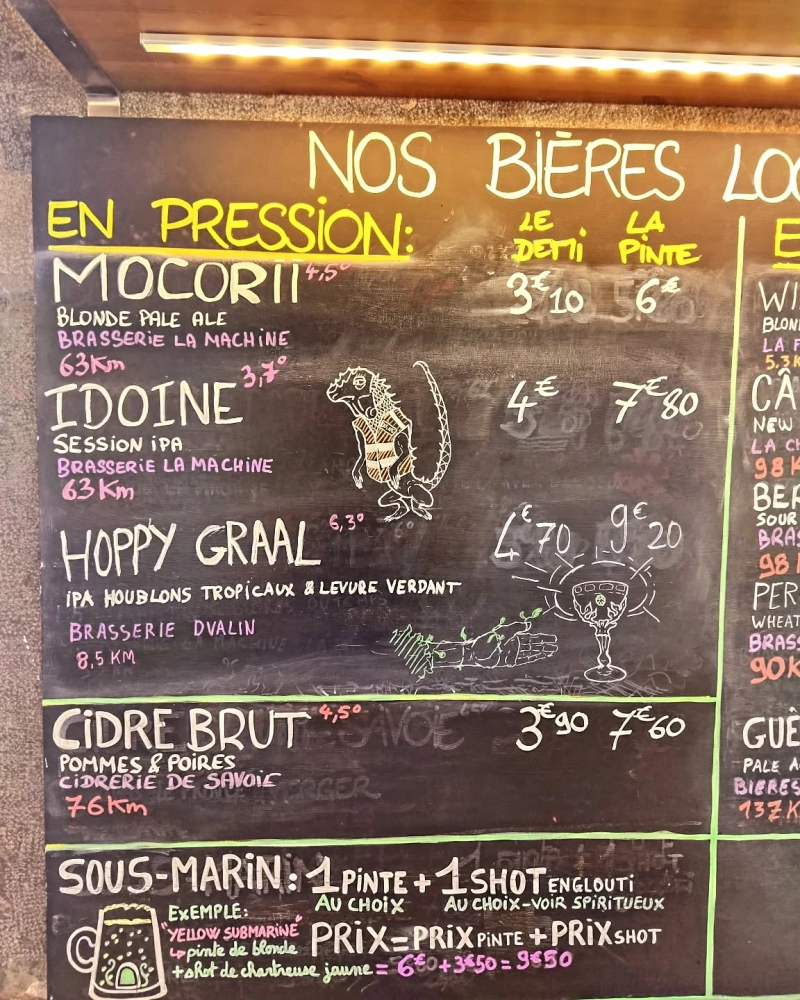 NOS BIÈRES LOC
EN PRESSION:
LE DEMI
LA PINTE
MOCORII 4,5°
3€10 6€
BLONDE PALE ALE
BRASSERIE LA MACHINE
63Km
IDOINE 3,7°
4€ 7€80
SESSION IPA
BRASSERIE LA MACHINE
63Km
HOPPY GRAAL 6,3°
4€70 9€20
IPA HOUBLONS TROPICAUX & LEVURE VERDANT
BRASSERIE DVALIN
8,5 KM
CIDRE BRUT 4,5°
3€90 7€60
POMMES & POIRES
CIDRERIE DE SAVOIE
76Km
SOUS-MARIN: 1 PINTE + 1 SHOT ENGLOUTI
AU CHOIX AU CHOIX-VOIR SPIRITUEUX
EXEMPLE:
"YELLOW SUBMARINE"
↳ pinte de blonde
+ shot de chartreuse jaune = 6€ + 3€50 = 9€50
PRIX = PRIX PINTE + PRIX SHOT
E
WI
BLON
LA F
5.3 K
CÂ
NEW
LA C
98 K
BER
SOUR
BRAS
98
PER
WHEAT
BRASS
90K
GUÊ
PALE A
BIERES
137 K